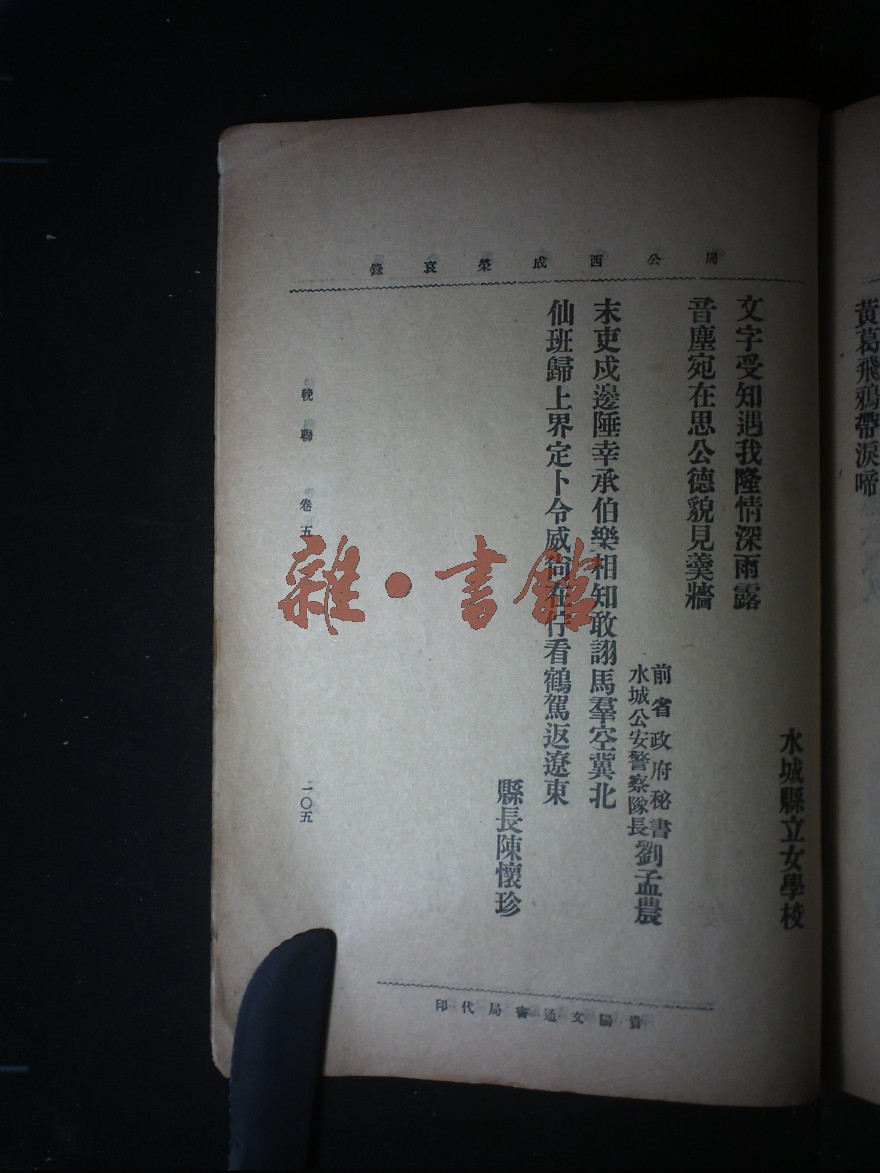 周公西成榮哀錄
黃葛飛鴉帶淚啼
水城縣立女學校
文字受知遇我隆情深雨露
音塵宛在思公德貌見羹牆
前省政府秘書
水城公安警察隊長
劉孟農
末吏戍邊陲幸承伯樂相知敢詡馬羣空冀北
仙班歸上界定卜令威尚在佇看鶴駕返遼東
縣長陳懷珍
輓聯 卷五
一〇五
貴陽文通書局代印
雜·書館